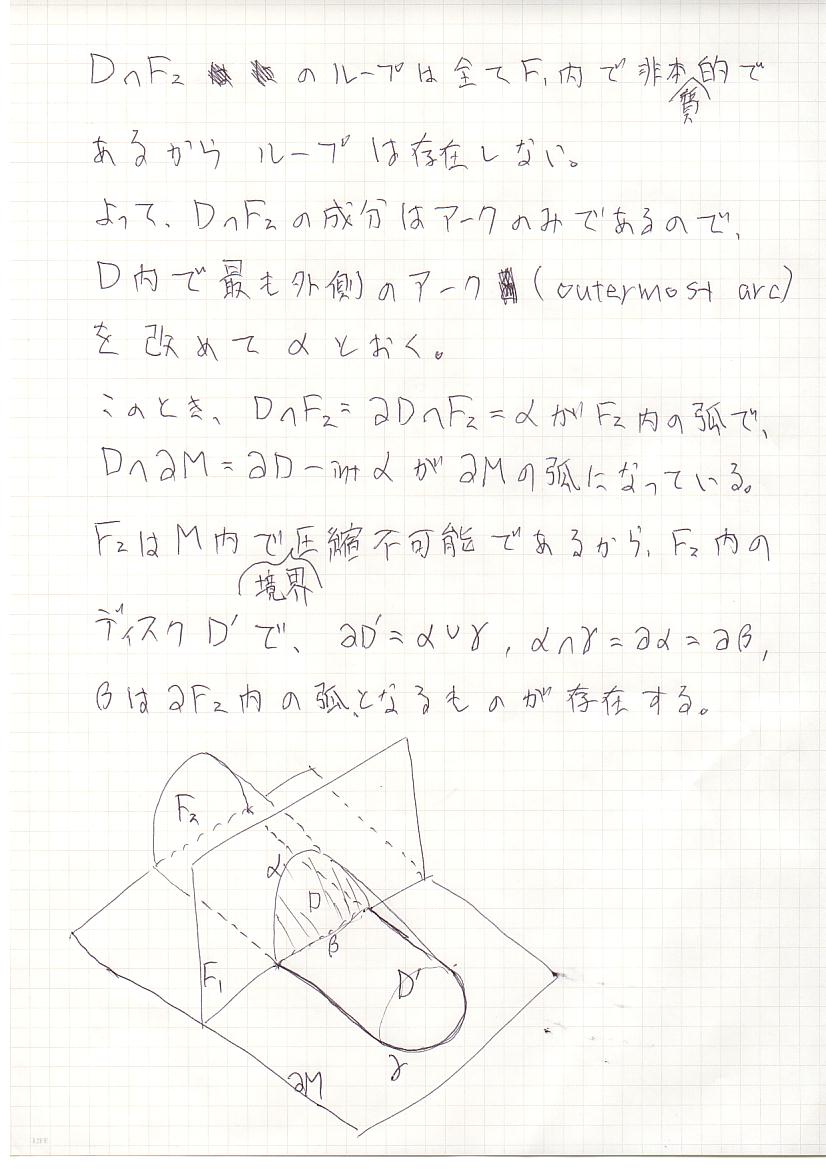 D∩F₂ のループは全てF₁内で非本質的で
あるからループは存在しない。
よって、D∩F₂の成分はアークのみであるので、
D内で最も外側のアーク(outermost arc)
を改めてαとおく。
このとき、D∩F₂=∂D∩F₂=αがF₂内の弧で、
D∩∂M=∂D-int αが∂Mの弧になっている。
F₂はM内で境界圧縮不可能であるから、F₂内の
ディスクD'で、∂D'=α∪γ, α∩γ=∂α=∂β,
βは∂F₂内の弧、となるものが存在する。
F₂
α
D
β
F₁
D'
γ
∂M
LIFE